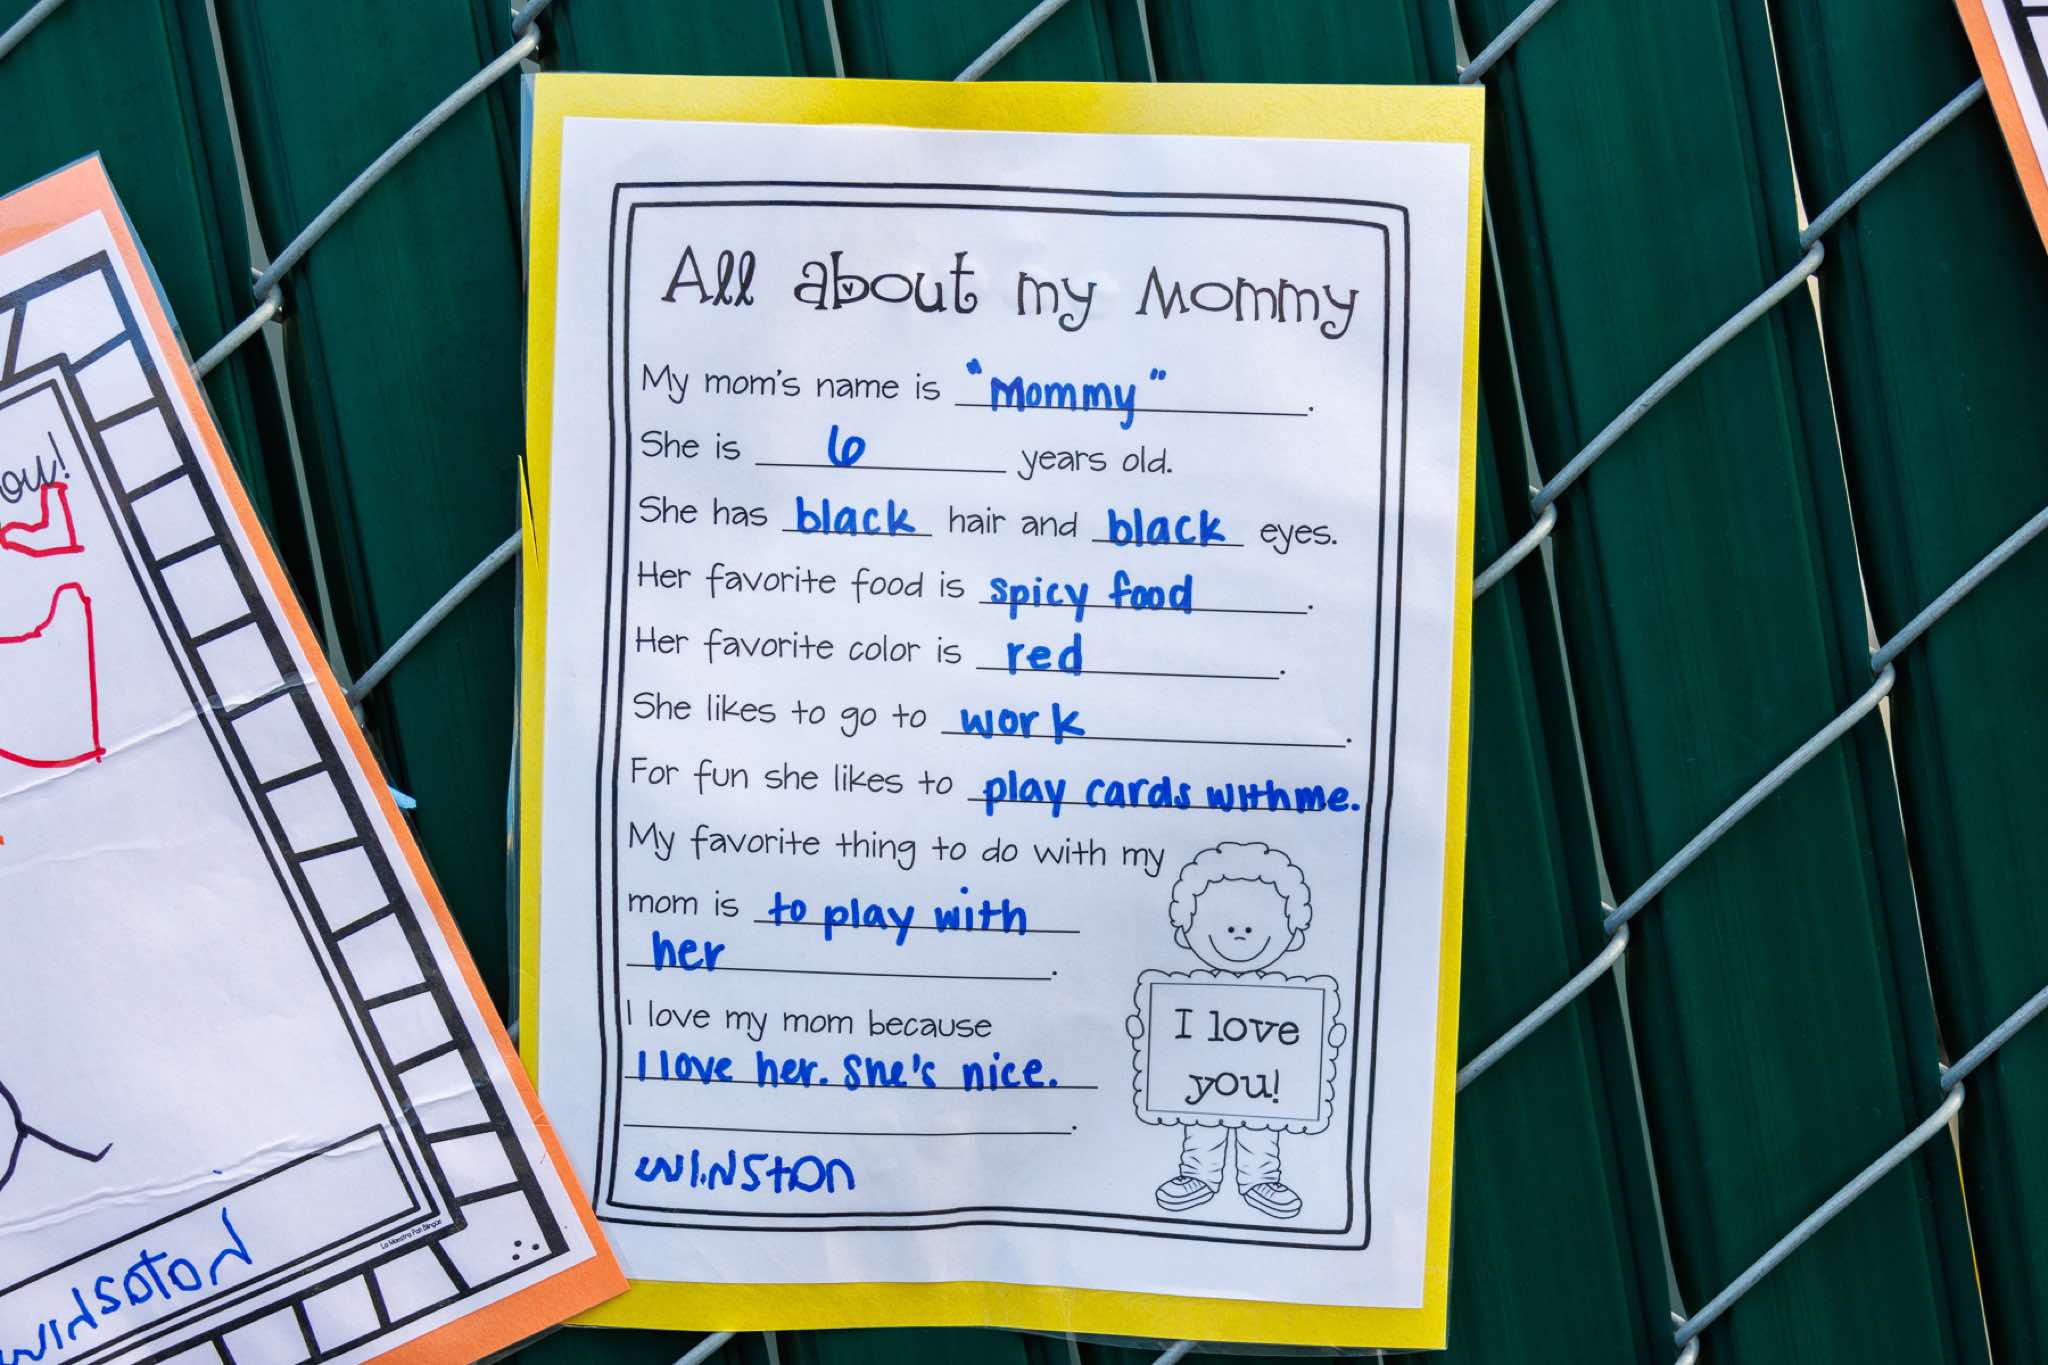 All about my Mommy
My mom's name is "Mommy".
She is 6 years old.
She has black hair and black eyes.
Her favorite food is spicy food.
Her favorite color is red.
She likes to go to work.
For fun she likes to play cards with me.
My favorite thing to do with my
mom is to play with
her.
I love my mom because
I love her. She's nice.
.
WINSTON
I love
you!
ou!
La Maestra Pan Bilingüe
WINSOTON